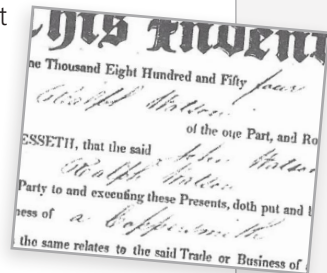 t
This Inden
ne Thousand Eight Hundred and Fifty four
Ralph Watson
of the one Part, and Ro
ESSETH, that the said John Watson
Ralph Watson
Party to and executing these Presents, doth put and
ness of a Coppersmith
the same relates to the said Trade or Business of